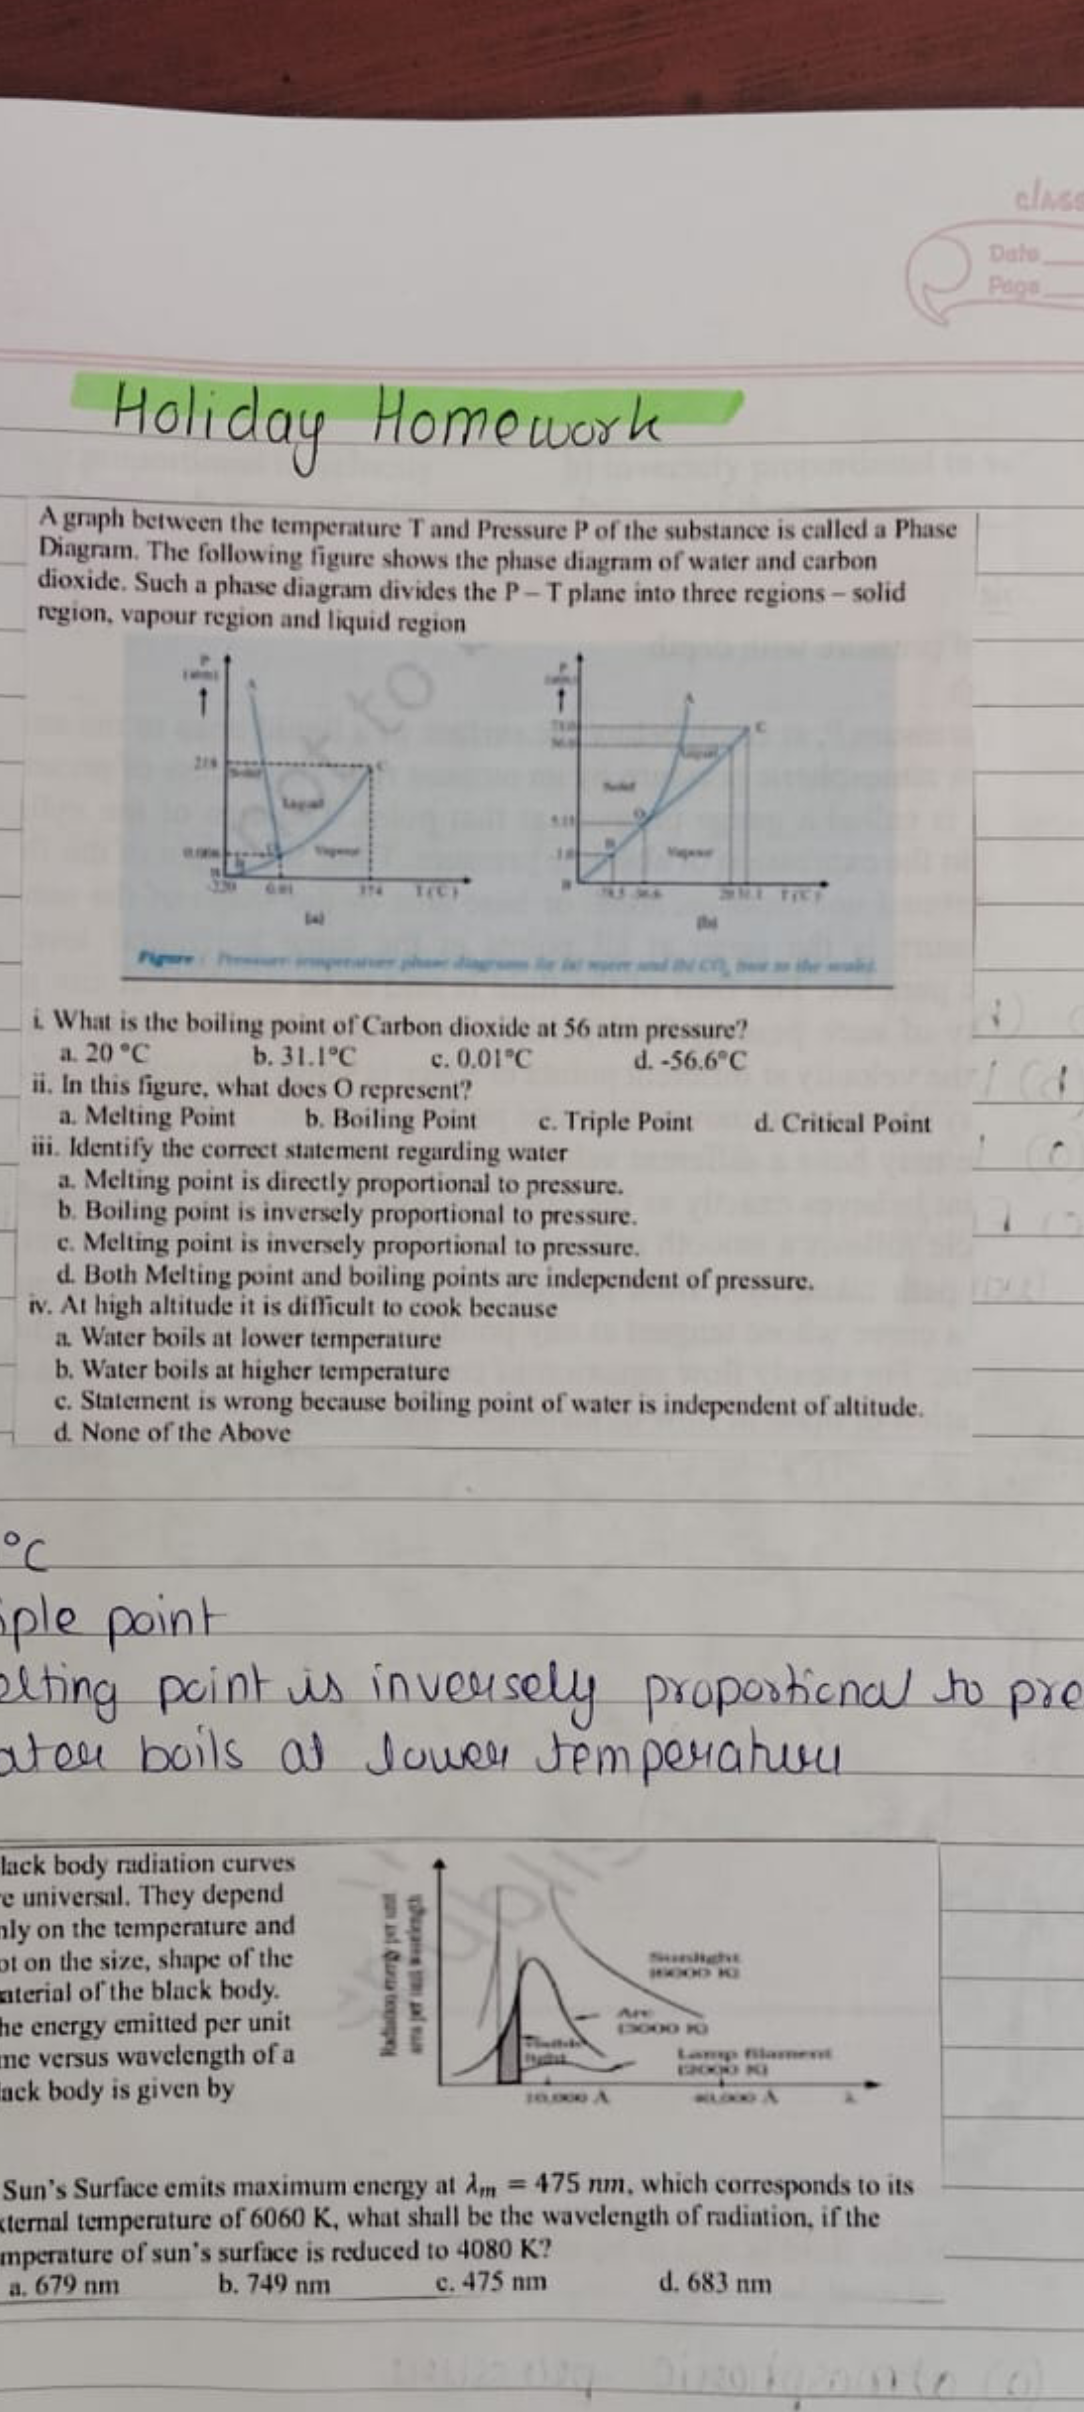 class
Date
Page
Holiday Homework
A graph between the temperature T and Pressure P of the substance is called a Phase
Diagram. The following figure shows the phase diagram of water and carbon
dioxide. Such a phase diagram divides the P – T plane into three regions – solid
region, vapour region and liquid region
P
P
A
A
C
C
218
Solid
Liquid
Liquid
Solid
O
Vapour
Vapour
B
374 T(°C)
T(°C)
(a)
(b)
Figure : Pressure-temperature phase diagrams for (a) water and (b) CO₂ (not to the scale).
i. What is the boiling point of Carbon dioxide at 56 atm pressure?
a. 20 °C b. 31.1°C c. 0.01°C d. -56.6°C
ii. In this figure, what does O represent?
a. Melting Point b. Boiling Point c. Triple Point d. Critical Point
iii. Identify the correct statement regarding water
a. Melting point is directly proportional to pressure.
b. Boiling point is inversely proportional to pressure.
c. Melting point is inversely proportional to pressure.
d. Both Melting point and boiling points are independent of pressure.
iv. At high altitude it is difficult to cook because
a. Water boils at lower temperature
b. Water boils at higher temperature
c. Statement is wrong because boiling point of water is independent of altitude.
d. None of the Above
°C
iple point
elting point is inversely proportional to pre
ater boils at lower temperature
lack body radiation curves
e universal. They depend
nly on the temperature and
ot on the size, shape of the
aterial of the black body.
he energy emitted per unit
me versus wavelength of a
lack body is given by
Radiation energy per unit
area per unit wavelength
Sunlight
(6000 K)
Arc
(3000 K)
Visible
light
Lamp filament
(2000 K)
10,000 Å 40,000 Å λ
Sun's Surface emits maximum energy at λm = 475 nm, which corresponds to its
xternal temperature of 6060 K, what shall be the wavelength of radiation, if the
mperature of sun's surface is reduced to 4080 K?
a. 679 nm b. 749 nm c. 475 nm d. 683 nm